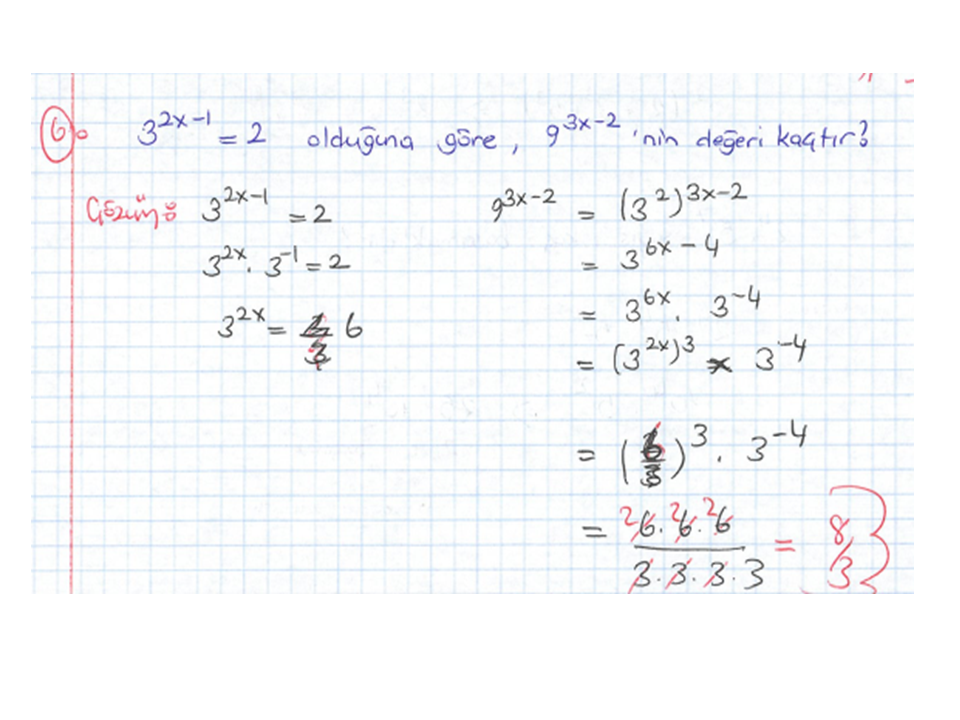 6. 3^{2x-1} = 2 olduğuna göre, 9^{3x-2} 'nin değeri kaçtır?
Çözüm: 3^{2x-1} = 2
3^{2x} . 3^{-1} = 2
3^{2x} = 6
9^{3x-2} = (3^2)^{3x-2}
= 3^{6x-4}
= 3^{6x} . 3^{-4}
= (3^{2x})^3 x 3^{-4}
= (6)^3 . 3^{-4}
= 26.26.26 / 3.3.3.3 = 8/3